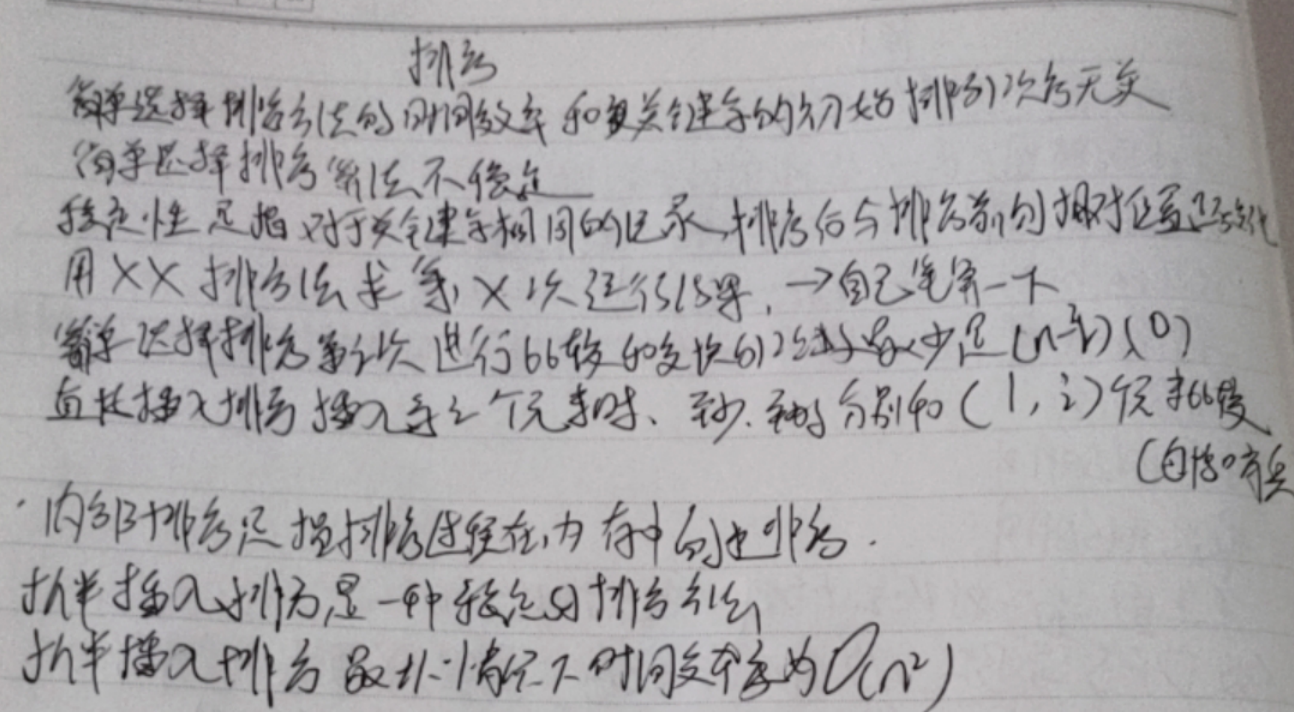 排序
简单选择排序算法的时间效率和关键字的初始排列次序无关
简单选择排序算法不稳定
稳定性是指对于关键字相同的记录,排序后与排序前的相对位置
用XX排序法求第X次运行结果,→自己笔算一下
简单选择排序第i次进行比较和交换的次数最少是(n-i)、(0)
直接插入排序插入第i个元素时、至少、至多分别和(1,i)个元素比较
(包括哨兵
·内部排序是指排序过程在内存中的排序.
折半插入排序,是一种稳定的排序算法
折半插入排序最坏情况下时间复杂度为O(n²)